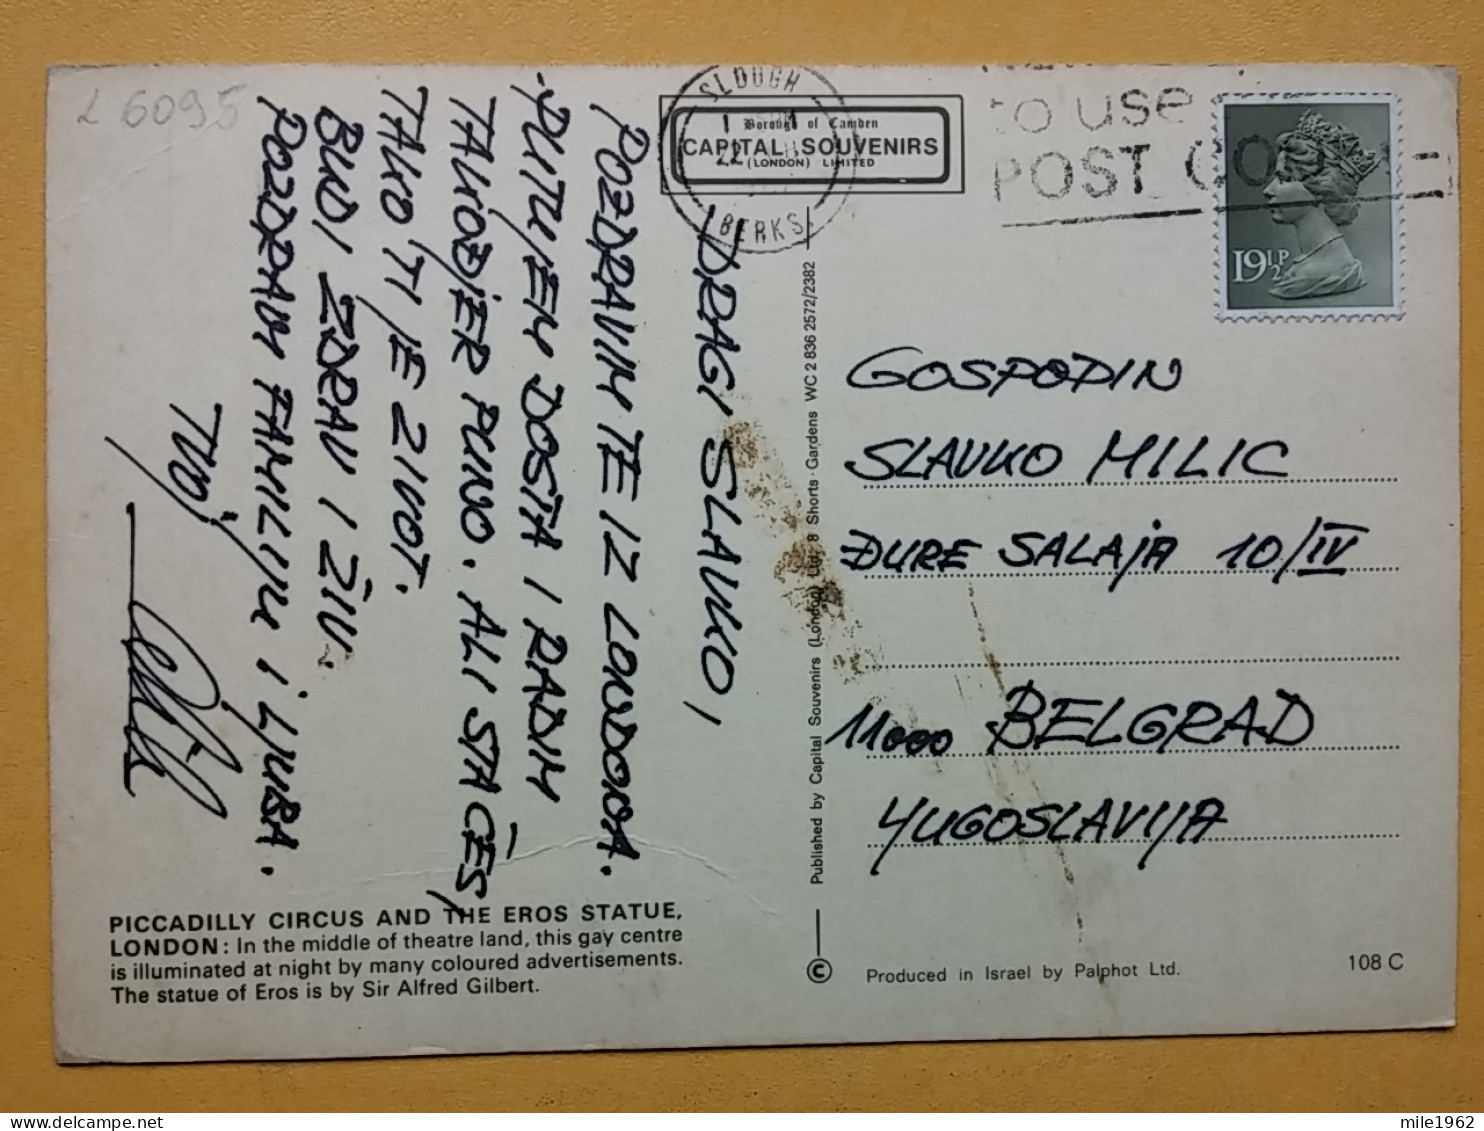 L 6095
DRAGI SLAVKO,
POZDRAVIM TE IZ LONDONA.
PUTUJEM DOSTA I RADIM
TAKODJER PUNO. ALI STA ĆEŠ,
TAKO TI JE ZIVOT.
BUDI ZDRAV I ŽIV.
POZDRAVI FAMILIJU I LJUBA.
TVOJ
Borough of Camden
CAPITAL SOUVENIRS
(LONDON) LIMITED
SLOUGH
22
BERKS
to use
POST CODE
19½P
GOSPODIN
SLAVKO MILIC
ĐURE SALAJA 10/IV
11000 BELGRAD
YUGOSLAVIJA
Published by Capital Souvenirs (London) Ltd., 8 Shorts Gardens WC 2 836 2572/2382
PICCADILLY CIRCUS AND THE EROS STATUE,
LONDON: In the middle of theatre land, this gay centre
is illuminated at night by many coloured advertisements.
The statue of Eros is by Sir Alfred Gilbert.
©
Produced in Israel by Palphot Ltd.
108 C
mile1962